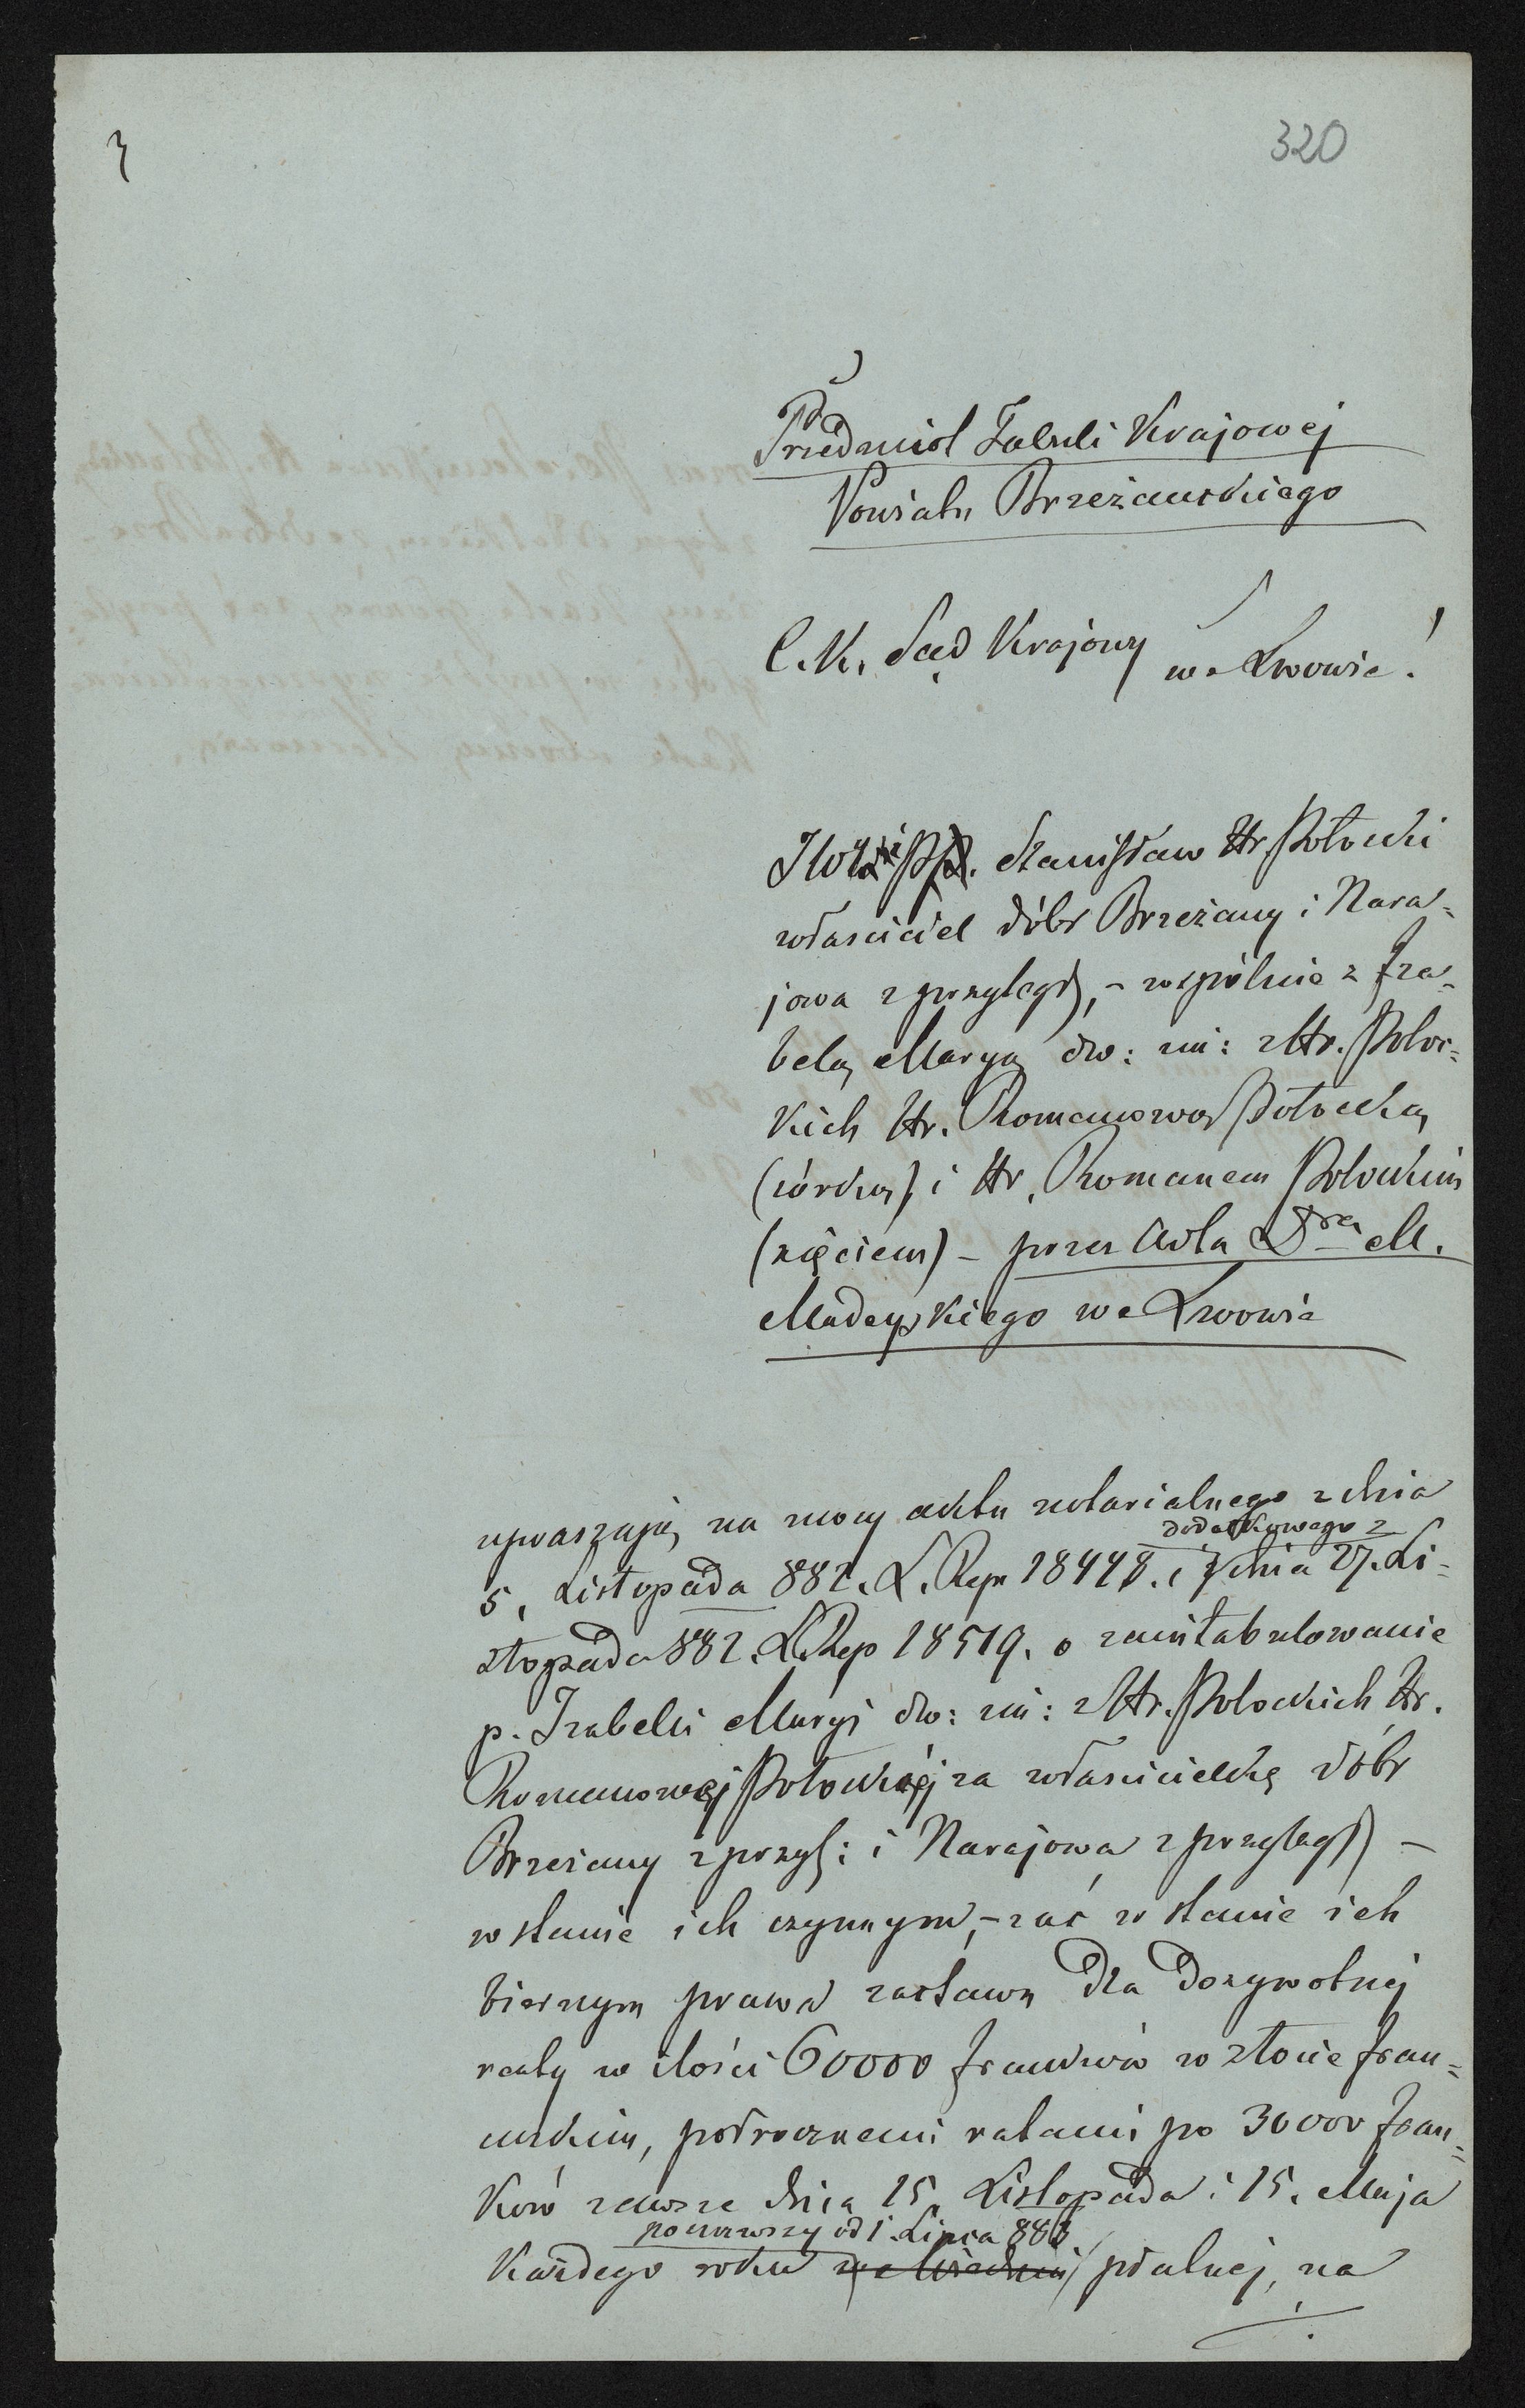 320
Przedmiot Tabuli Krajowej
Powiatu Brzeżańskiego
C. K. Sąd Krajowy we Lwowie!
Stanisław Hr. Potocki
właściciel dóbr Brzeżany i Nara=
jowa z przyległ, – wspólnie z Iza=
belą Maryą dw: im: z Hr. Potoc=
kich Hr. Romanową Potocką
(córką) i Hr. Romanem Potockim
(zięciem) – przez Adta Dra M.
Madeyskiego we Lwowie
upraszają na mocy aktu notarialnego z dnia
dodatkowego z
5. Listopada 882. L. Rep 18448. i dnia 27. Li=
stopada 882. L. Rep 18519. o zaintabulowanie
p. Izabeli Maryi dw: im: z Hr. Potockich Hr.
Romanowej Potockiej za właścicielkę dóbr
Brzeżany z przyl: i Narajowa z przyległ) –
w stanie ich czynnym, – zaś w stanie ich
biernym prawa zastawu dla dożywotnej
renty w ilości 60000 franków w złocie fran=
cuskim, półrocznemi ratami po 30000 fran=
ków zawsze dnia 15. Listopada i 15. Maja
począwszy od 1. Lipca 883
każdego roku we Wiedniu płatnej, na